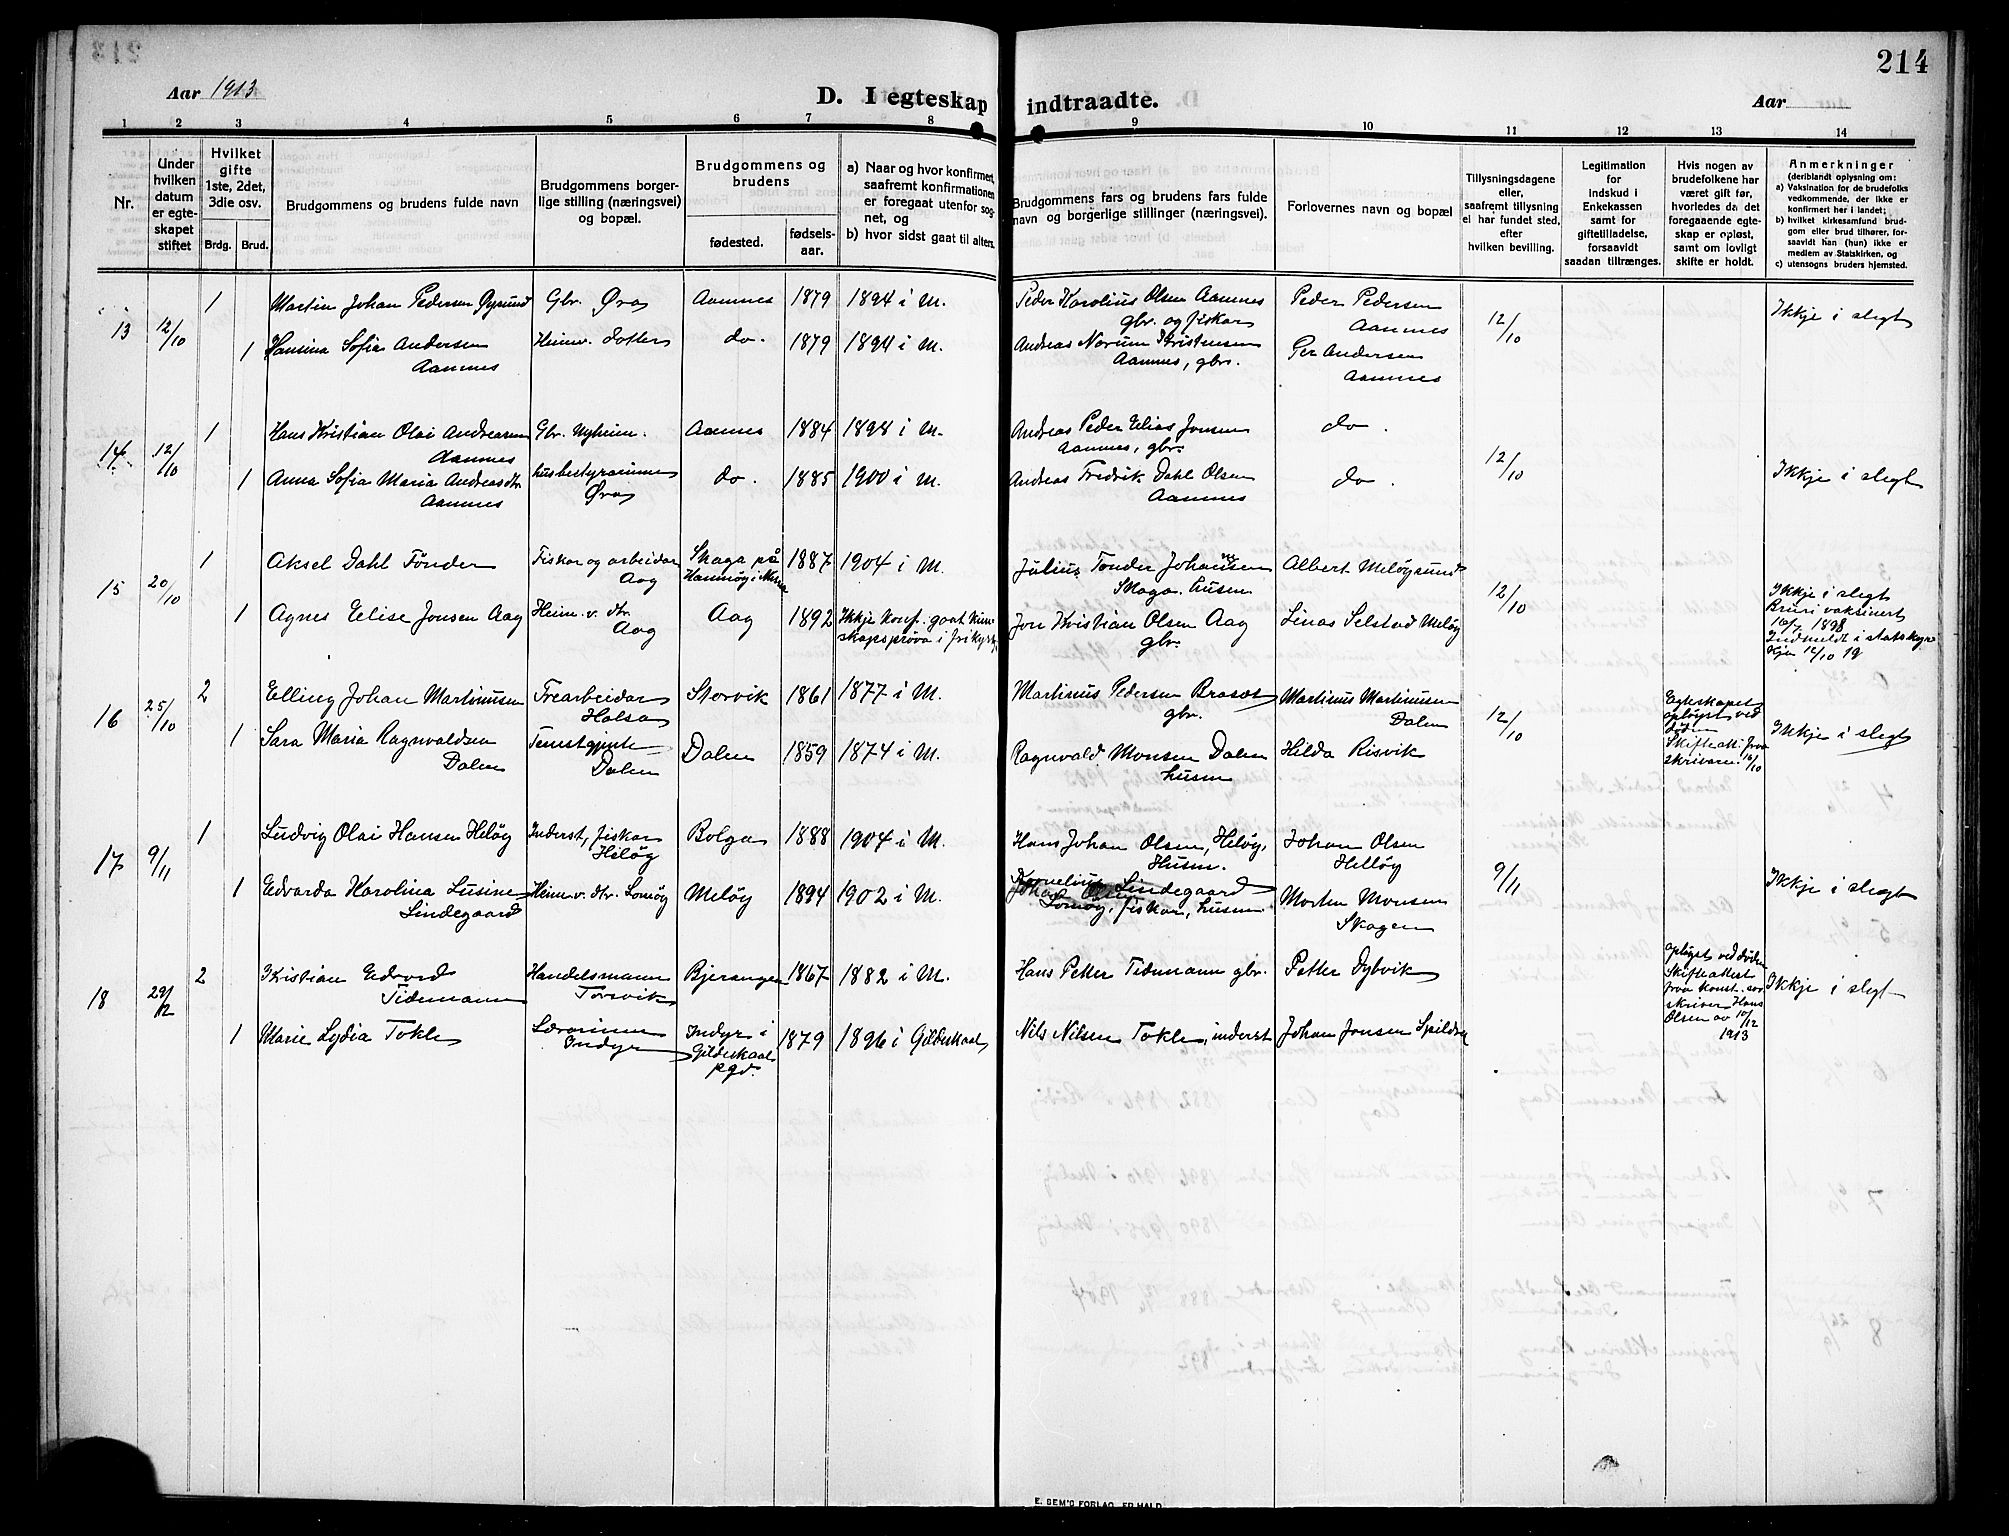 214
Aar 1913
D. I egteskap indtraadte.
Aar
1 2 3 4 5 6 7 8 9 10 11 12 13 14
Nr.
Under hvilken datum er egteskapet stiftet
Hvilket gifte 1ste, 2det, 3die osv.
Brdg. Brud.
Brudgommens og brudens fulde navn
Brudgommens borgerlige stilling (næringsvei) og bopæl.
Brudgommens og brudens
fødested.
fødselsaar.
a) Naar og hvor konfirmert, saafremt konfirmationen er foregaat utenfor sognet, og
b) hvor sidst gaat til alters.
Brudgommens fars og brudens fars fulde navn og borgerlige stillinger (næringsvei).
Forlovernes navn og bopæl
Tillysningsdagene eller, saafremt tillysning ei har fundet sted, efter hvilken bevilling.
Legitimation for indskud i Enkekassen samt for giftetilladelse, forsaavidt saadan tiltrænges.
Hvis nogen av brudefolkene har været gift før, hvorledes da det foregaaende egteskap er opløst, samt om lovligt skifte er holdt.
Anmerkninger
(deriblandt oplysning om:
a) Vaksination for de brudefolks vedkommende, der ikke er konfirmert her i landet;
b) hvilket kirkesamfund brudgom eller brud tilhører, forsaavidt han (hun) ikke er medlem av Statskirken, og
c) utensogns bruders hjemsted.
13 12/10
1 Martin Johan Pedersen Øysund Gbr. Øra Aamnes 1879 1894 i M. Peder Karolius Olsen Aamnes gbr. og fiskar Peder Pedersen Aamnes 12/10 Ikkje i slegt
1 Hansina Sofia Andersen Aamnes Heimv. dotter do. 1879 1894 i M. Andreas Norum Kristensen Aamnes, gbr. Per Andersen Aamnes
14 12/10
1 Hans Kristian Olai Andreasen Aamnes Gbr. Nyheim. Aamnes 1884 1898 i M. Andreas Peder Elias Jonsen Aamnes, gbr. do. 12/10
1 Anna Sofia Maria Andreasdtr Aamnes husbestyrarinne Øra do. 1885 1900 i M. Andreas Fredrik Dahl Olsen Aamnes do. Ikkje i slegt
15 20/10
1 Aksel Dahl Tønder Fiskar og arbeidar Aag Skaga på 1887 1904 i M. Julius Tønder Johansen Skaga. husm. Albert Meløysund 12/10 Ikkje i slegt
1 Agnes Elise Jonsen Aag Heim. v. dtr. Aag Aag 1892 Ikkje konf. gaat kunskapsprøva i frikyrkj. Jon Kristian Olsen Aag gbr. Linas Selstad Meløy
Bruri vaksinert
1898
Indmeldt i statskyrkja 12/10 19
16 25/10
2 Elling Johan Martinusen Trearbeidar Halsa Storvik 1861 1877 i M. Martinus Pedersen Braset gbr. Martinus Martinusen Dalen 12/10 Egteskapet opløyst ved døden Skifteatt. fraa skrivaren 16/10 Ikkje i slegt
1 Sara Maria Ragnvaldsen Dalen Tenestgjente Dalen Dalen 1859 1874 i M. Ragnvald Monsen Dalen husm Hilda Risvik
17 9/11
1 Ludvig Olai Hansen Heløy Inderst, fiskar Heløy Bolga 1888 1904 i M. Hans Johan Olsen, Heløy, Husm. Johan Olsen Helløy 9/11
1 Edvarda Karolina Lusine Lindegaard Heim. v. dtr. Lomøy Meløy 1894 1902 i M. Lindegaard Lomøy, fiskar, husm Morten Monsen Skagen Ikkje i slegt
18 29/12
2 Kristian Edvard Tidemann Handelsmann Torsvik Bjerangen 1867 1882 i M. Hans Petter Tidemann gbr. Petter Dybvik opløyst ved døden Skifteattest fraa konst. sorskriver Hans Olsen av 10/12 1913 Ikkje i slegt
1 Marie Lydia Tokle Lærarinne Indyr Indyr i Gildeskaal pgd. 1879 1896 i Gildeskaal Nils Nilsen Tokle, inderst Johan Jonsen Spildra
E. SEM'S FORLAG, FR.HALD